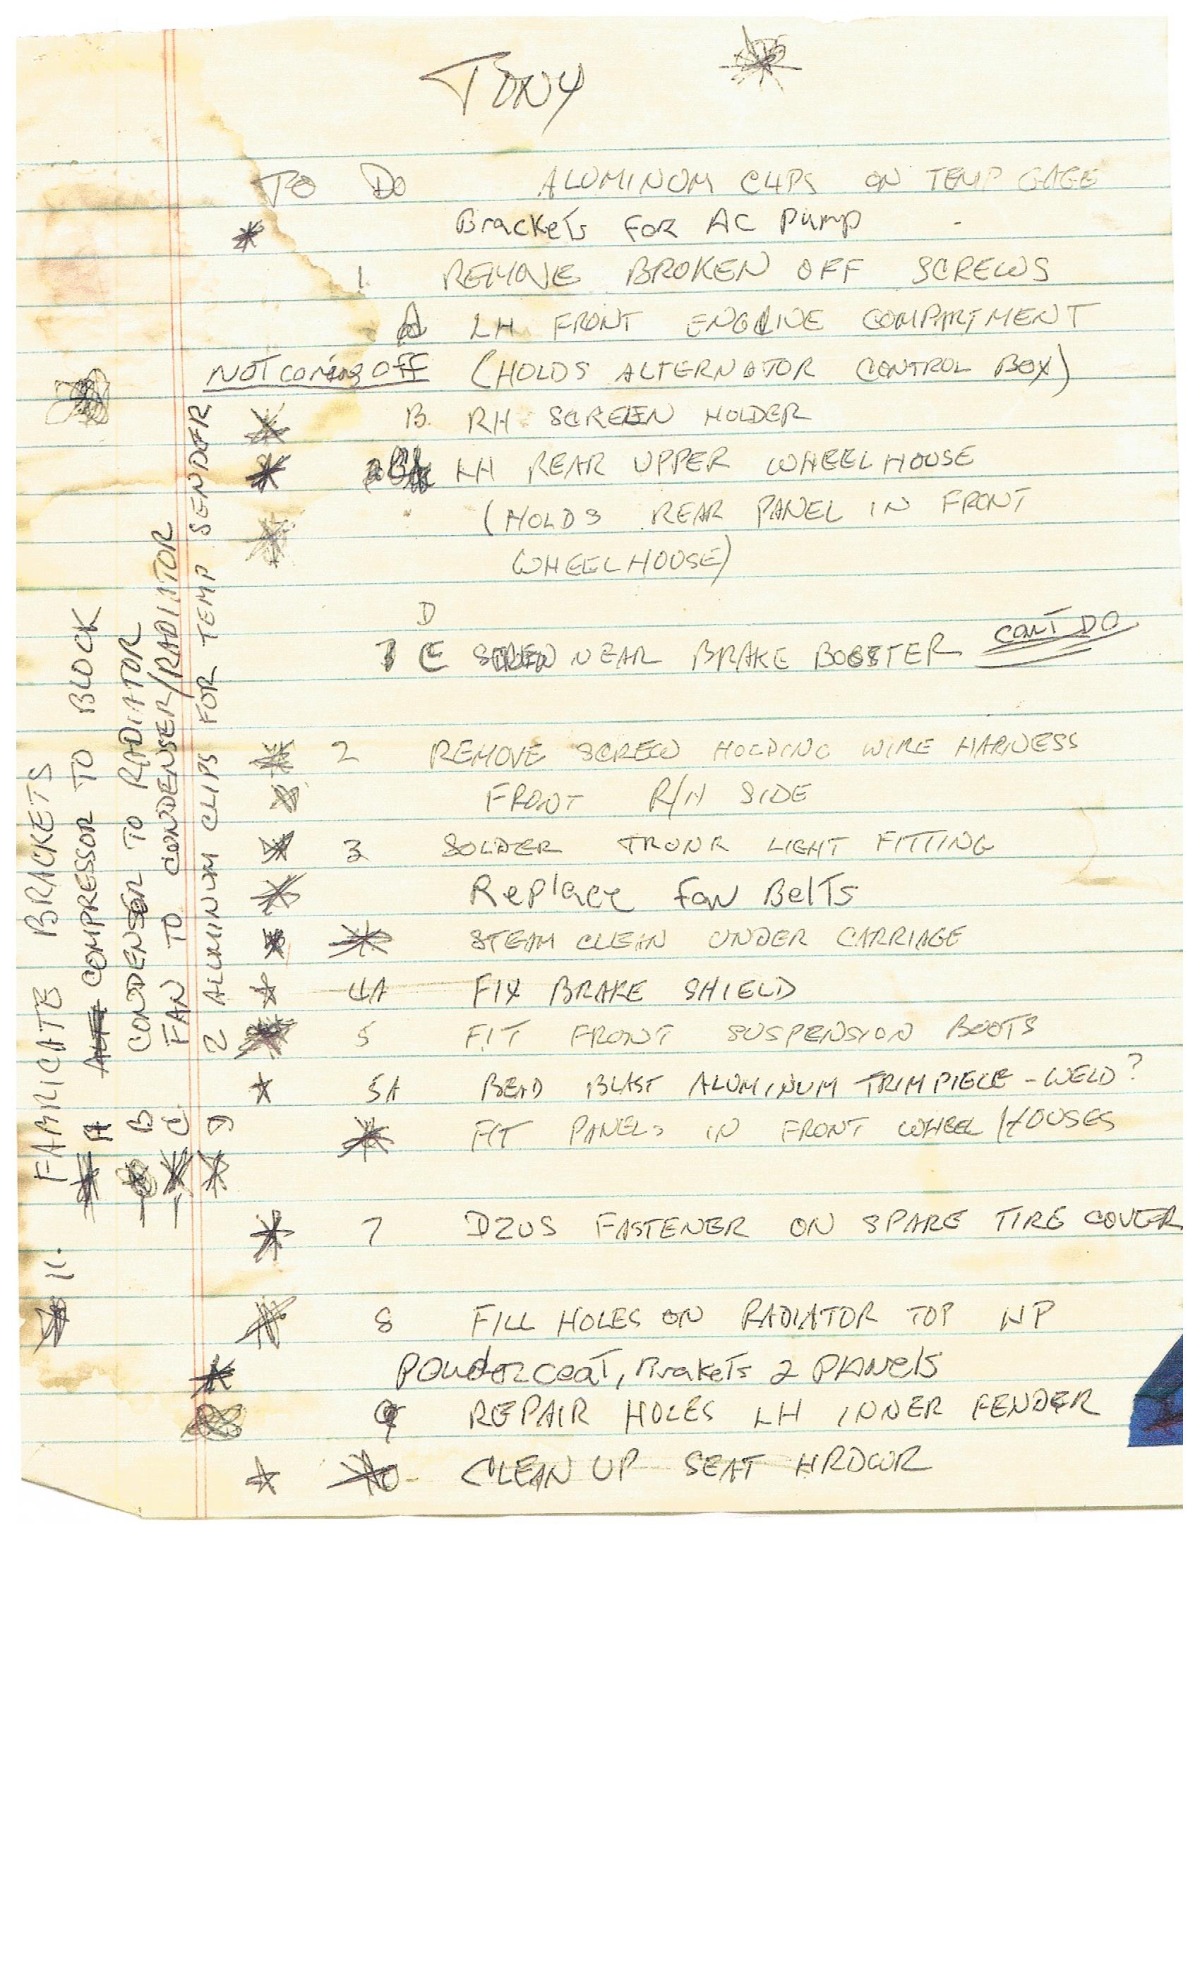 TONY
TO DO ALUMINUM CLIPS ON TEMP GAGE
Brackets FOR AC Pump
1. REMOVE BROKEN OFF SCREWS
A LH FRONT ENGINE COMPARTMENT
NOT coming off (HOLDS ALTERNATOR CONTROL BOX)
B. RH SCREEN HOLDER
LH REAR UPPER WHEELHOUSE
(HOLDS REAR PANEL IN FRONT
WHEELHOUSE)
D
E NEAR BRAKE BOOSTER CONT DO
2 REMOVE SCREW HOLDING WIRE HARNESS
FRONT R/H SIDE
3 SOLDER TRUNK LIGHT FITTING
Replace fan Belts
STEAM CLEAN UNDER CARRIAGE
4A FIX BRAKE SHIELD
5 FIT FRONT SUSPENSION BOOTS
5A BEAD BLAST ALUMINUM TRIM PIECE - WELD?
FIT PANELS IN FRONT WHEEL HOUSES
7 DZUS FASTENER ON SPARE TIRE COVER
8 FILL HOLES ON RADIATOR TOP NP
Powder coat, Brakets 2 PANels
9 REPAIR HOLES LH INNER FENDER
CLEAN UP SEAT HRDWR
11. FABRICATE BRACKETS
A COMPRESSOR TO BLOCK
B CONDENSER TO RADIATOR
C FAN TO CONDENSER/RADIATOR
D 2 ALUMINUM CLIPS FOR TEMP SENDER